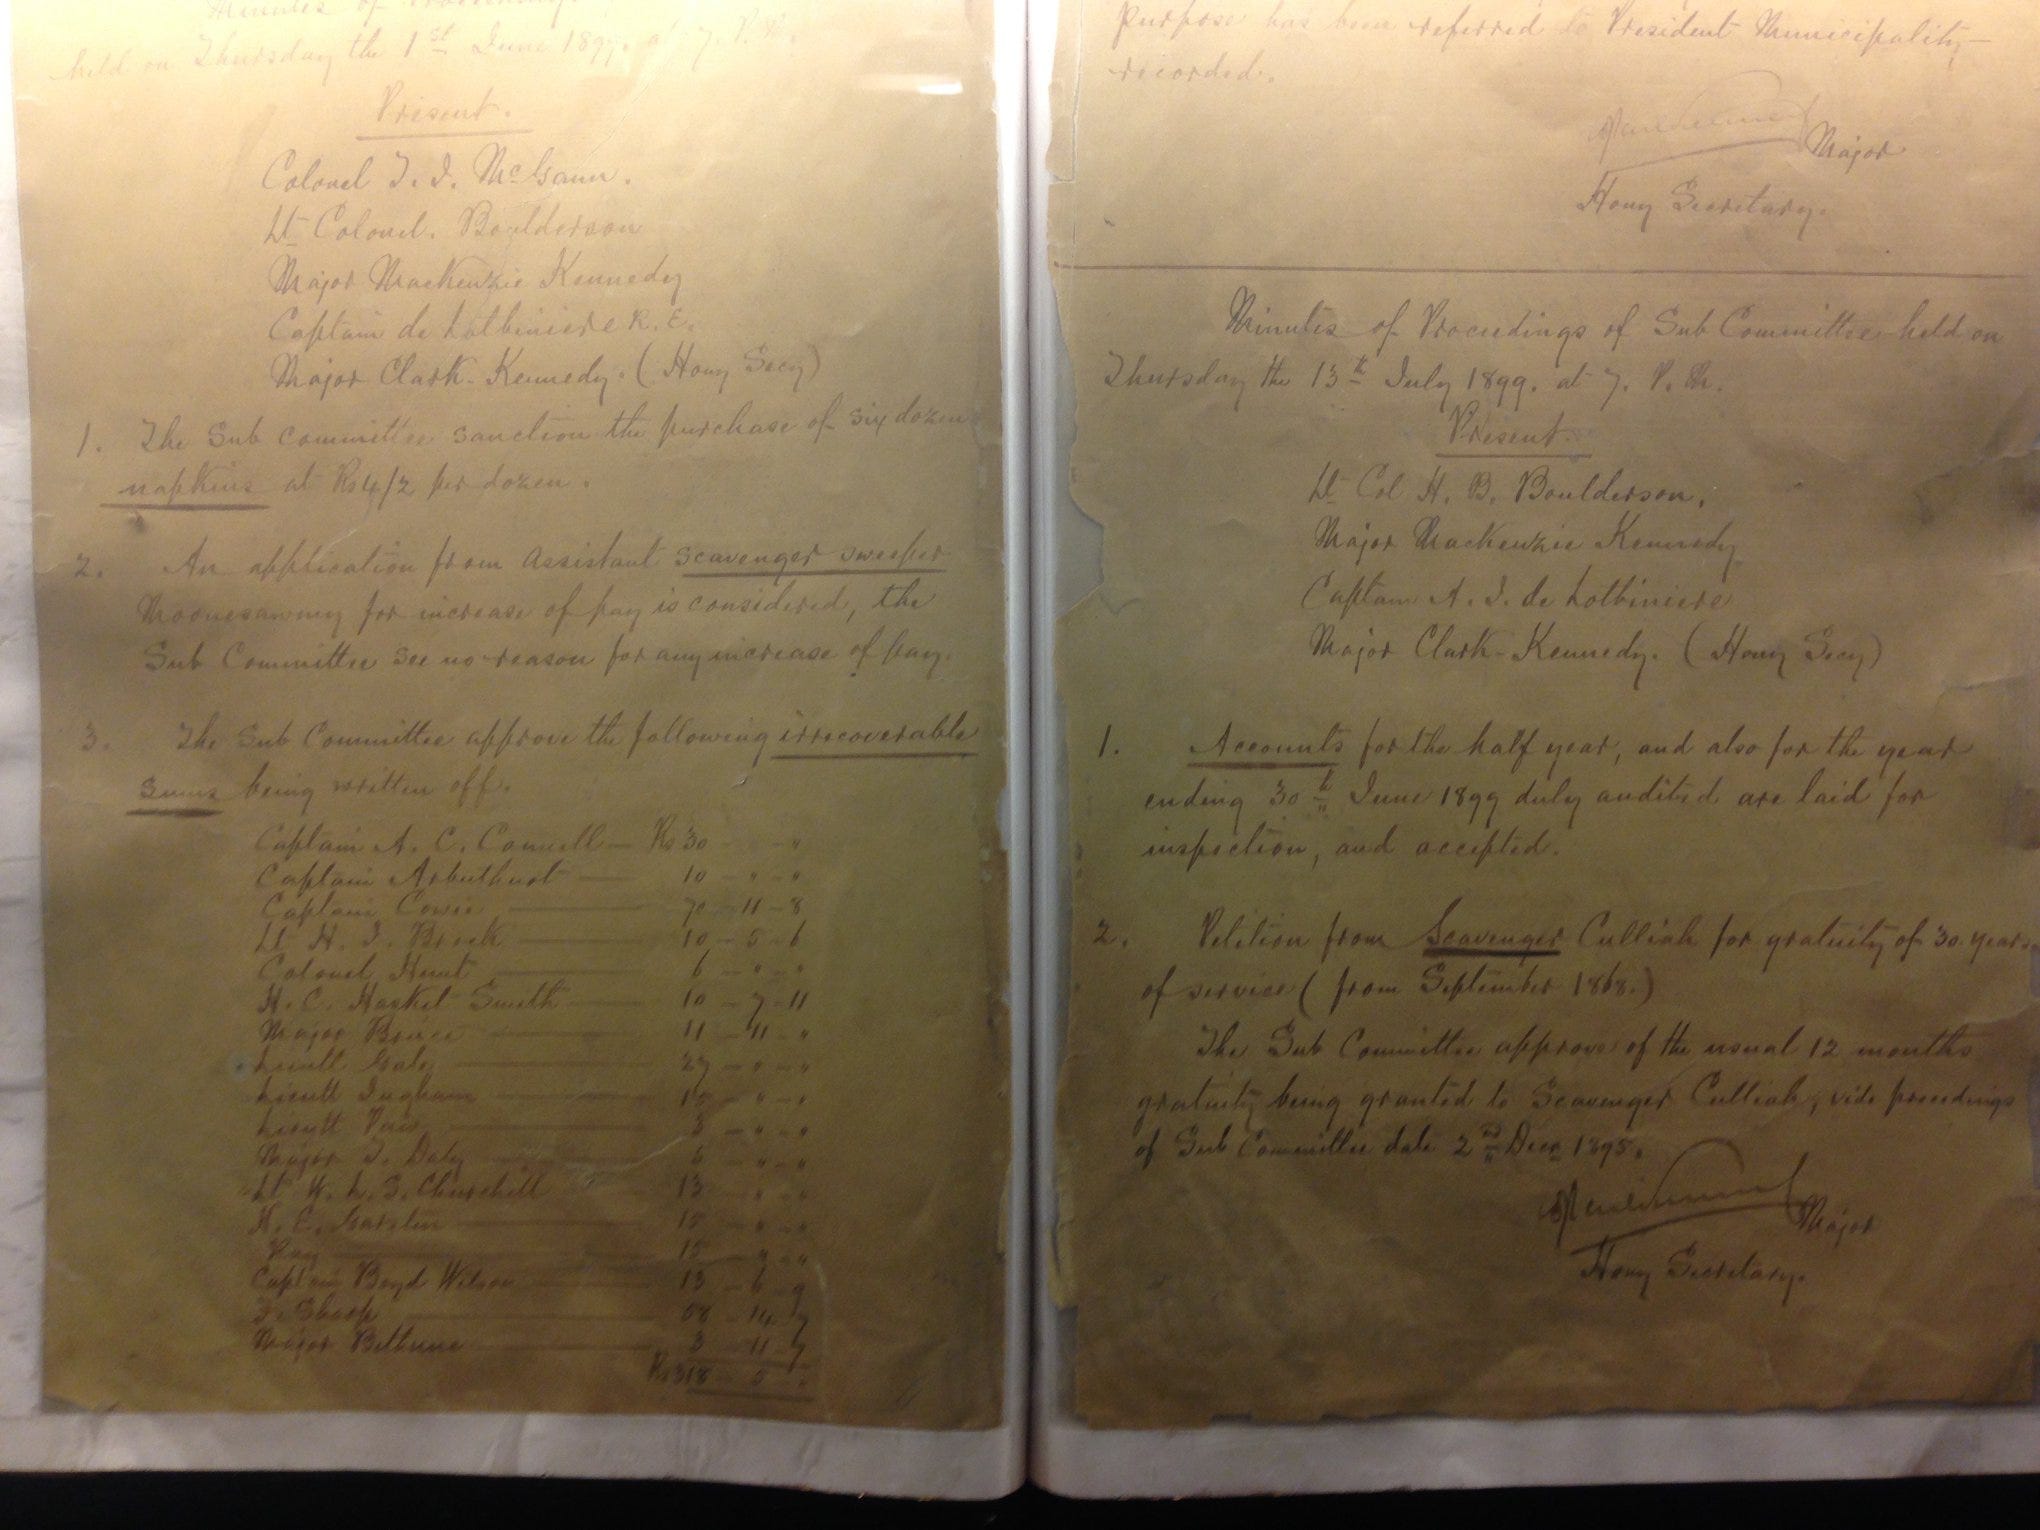 Minutes of Proceedings
held on Thursday the 1st June 1899. at 7. P. M.
Present.
Colonel T. J. McGann.
Lt Colonel. Boulderson
Major Mackenzie Kennedy
Captain de Lotbiniere R. E.
Major Clark-Kennedy. (Hony Secy)
1. The Sub Committee sanction the purchase of six dozen
napkins at Rs 4/2 per dozen.
2. An application from Assistant scavenger sweeper
Moonesawmy for increase of pay is considered, the
Sub Committee see no reason for any increase of pay.
3. The Sub Committee approve the following irrecoverable
sums being written off.
Captain A. C. Connell — Rs 30 - - "
Captain Arbuthnot — 10 - " - "
Captain Cowie — 70 - 11 - 8
Lt H. J. Brock — 10 - 5 - 6
Colonel Hunt — 6 - " - "
H. C. Hasket Smith — 10 - 7 - 11
Major Bruce — 11 - 11 - "
Lieutt Gale — 27 - " - "
Lieutt Ingham — 15 - " - "
Lieutt — 3 - " - "
Major J. Daly — 5 - " - "
Lt W. L. S. Churchill — 13 - " - "
H. E. Garstin — 15 - " - "
— 15 - " - "
Captain Boyd Wilson — 13 - 6 - 9
F. Sharp — 58 - 14 - 7
Major Bethune — 3 - 11 - 7
Rs 318 - 5 - "
purpose has been referred to President Municipality—
recorded.
Major
Hony Secretary.
Minutes of Proceedings of Sub Committee held on
Thursday the 13th July 1899. at 7. P. M.
Present.
Lt Col H. B. Boulderson.
Major Mackenzie Kennedy
Captain A. J. de Lotbiniere
Major Clark-Kennedy. (Hony Secy)
1. Accounts for the half year, and also for the year
ending 30th June 1899 duly audited are laid for
inspection, and accepted.
2. Petition from Scavenger Culliah for gratuity of 30 years
of service (from September 1868.)
The Sub Committee approve of the usual 12 months
gratuity being granted to Scavenger Culliah, vide proceedings
of Sub Committee date 2nd Decr 1895.
Major
Hony Secretary.